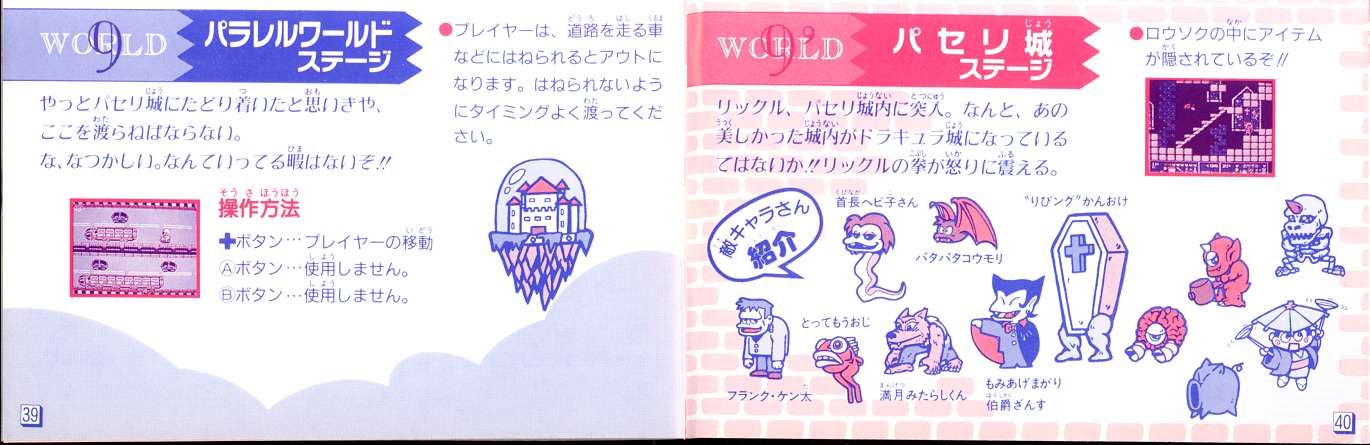 WORLD 9
パラレルワールド
ステージ
やっとパセリ城にたどり着いたと思いきや、
ここを渡らねばならない。
な、なつかしい。なんていってる暇はないぞ!!
操作方法
✚ボタン…プレイヤーの移動
Ⓐボタン…使用しません。
Ⓑボタン…使用しません。
●プレイヤーは、道路を走る車
などにはねられるとアウトに
なります。はねられないよう
にタイミングよく渡ってくだ
さい。
39
WORLD 9²
パセリ城
ステージ
リックル、パセリ城内に突入。なんと、あの
美しかった城内がドラキュラ城になっている
ではないか!!リックルの拳が怒りに震える。
●ロウソクの中にアイテム
が隠されているぞ!!
敵キャラさん
紹介
首長ヘビ子さん
パタパタコウモリ
“りびング”かんおけ
フランク・ケン太
とってもうおじ
満月みたらしくん
もみあげまがり
伯爵ざんす
40